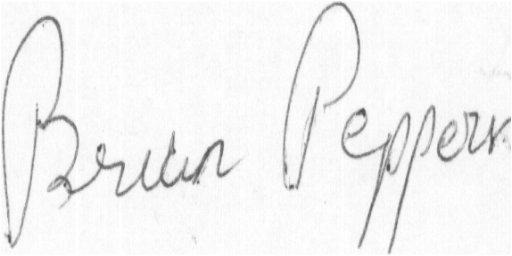 Brian Pepperr